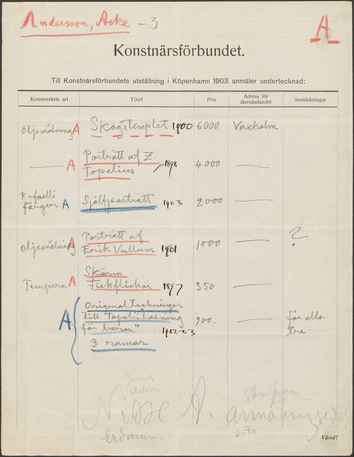 Andersson, Acke - 3
A
Konstnärsförbundet.
Till Konstnärsförbundets utställning i Köpenhamn 1903 anmäler undertecknad:
Konstverkets art Titel Pris Adress för återsändandet Anmärkningar
Oljemålning A Skogstemplet 1900 6000 Vaxholm
A Porträtt af Z.
Topelius 1898 4.000
Rafaelli
färger A Självporträtt 1903 2000
Oljemålning A Porträtt af
Erik Vullum 1901 1000 ?
Tempera A Skärm
Fiskflickor 1897 350
A Original Teckningar
till "Topelii läsning
för barn" 1902-3 900 - För alla
tre
3 ramar